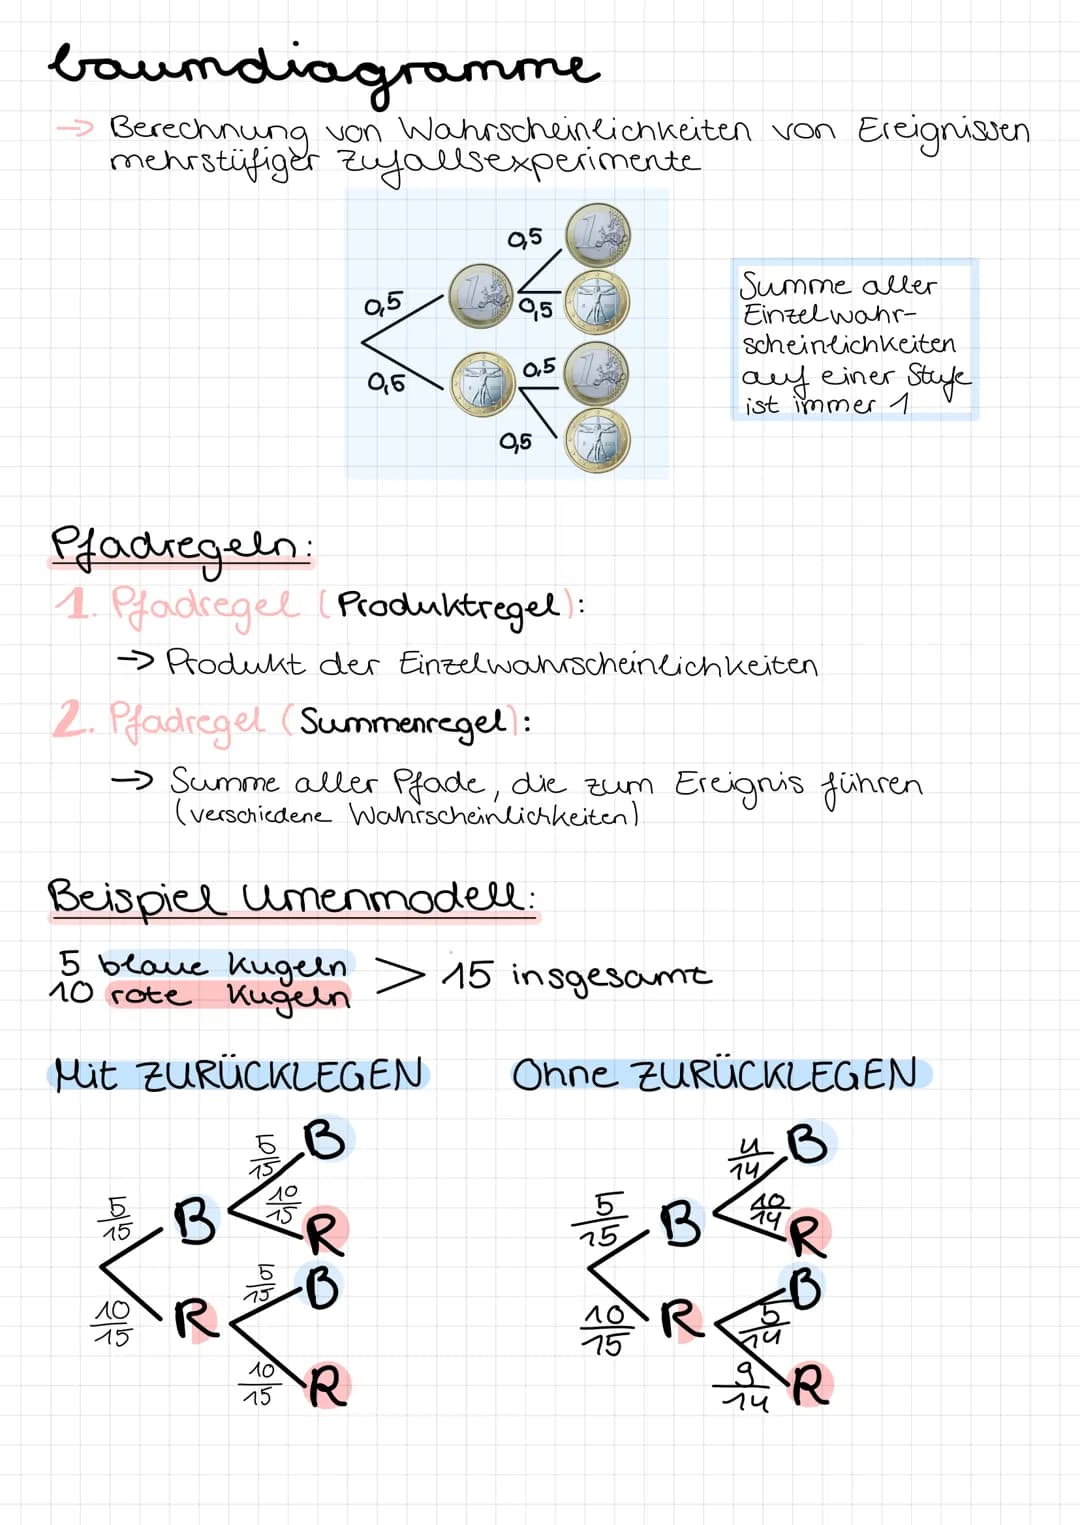 baumdiagramme
→ Berechnung von Wahrscheinlichkeiten von Ereignissen
mehrstüfiger Zufallsexperimente
0,5
0,5
0,5
0,5
0,5
0,5
Summe aller
Einzelwahr-
scheinlichkeiten
auf einer Stufe
ist immer 1
Pfadregeln:
1. Pfadregel (Produktregel):
→ Produkt der Einzelwahrscheinlichkeiten
2. Pfadregel (Summenregel):
→ Summe aller Pfade, die zum Ereignis führen
(verschiedene Wahrscheinlichkeiten)
Beispiel Urnenmodell:
5 blaue Kugeln
10 rote Kugeln
> 15 insgesamt
Mit ZURÜCKLEGEN
5/15 B
10/15 R
5/15 B
10/15 R
5/15 B
10/15 R
Ohne ZURÜCKLEGEN
5/15 B
10/15 R
4/14 B
10/14 R
5/14 B
9/14 R